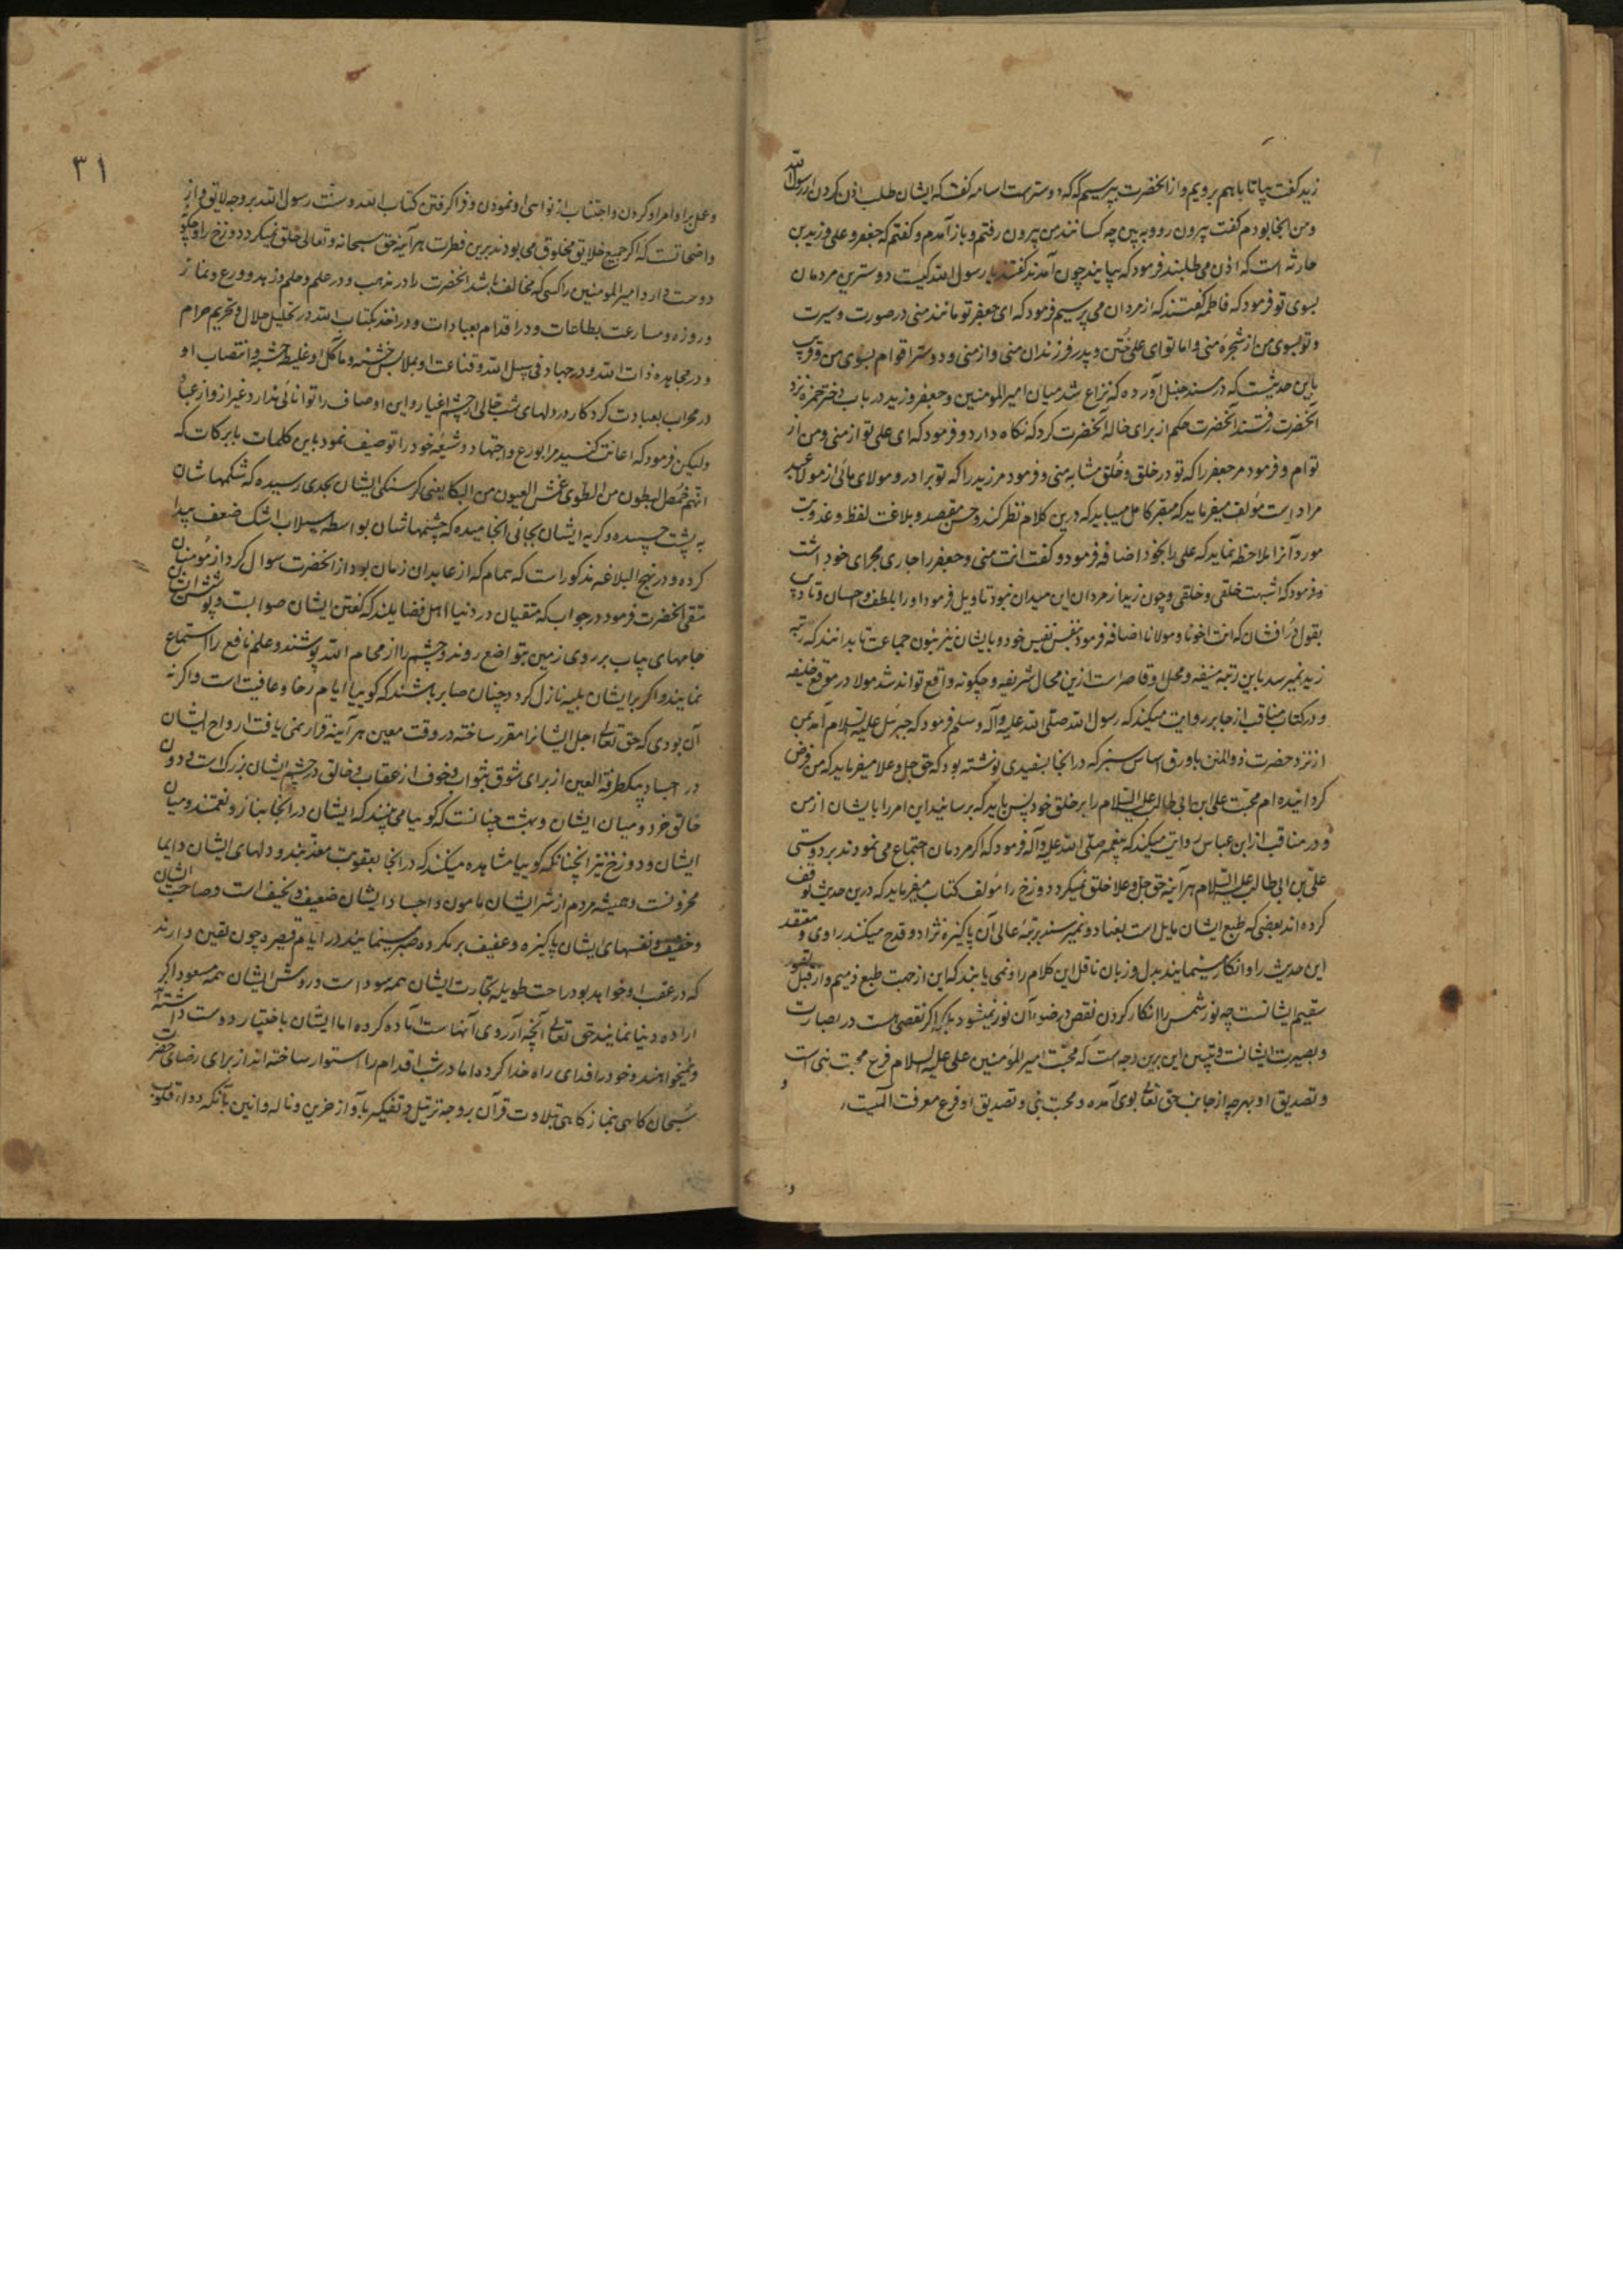 زید گفت بیا تا باهم برویم و از آنحضرت بپرسیم که که دوسترست اسامه گفت که ایشان طلب اذن کردن از رسول الله
و من آنجا بودم گفت بیرون رو و ببین چه کسانند من بیرون رفتم و باز آمدم و گفتم که جعفر و علی و زید بن
حارثه است که اذن می طلبند فرمود که بیایند چون آمدند گفتند یا رسول الله کیست دوسترین مردمان
بسوی تو فرمود که فاطمه گفتند که از مردان می پرسیم فرمود که ای جعفر تو مانند منی در صورت و سیرت
و تو بسوی من از شجره منی و اما تو ای علی ختن و پدر فرزندان منی و از منی و دوستر اقوام بسوی من و قریب
باین حدیثست که در مسند حنبل آورده که نزاع شد میان امیرالمومنین و جعفر و زید در باب دختر حمزه نزد
آنحضرت رفتند آنحضرت حکم از برای خاله آنحضرت کرد که نکاه دارد و فرمود که ای علی تو از منی و من از
توام و فرمود مر جعفر را که تو در خلق و خلق مشابه منی و فرمود مر زید را که تو برادر و مولای مائی از مولا عبد
مراد است مؤلف میفرماید که متفکر کامل میباید که درین کلام نظر کند و حسن مقصد و بلاغت لفظ و عذوبت
مورد آنرا ملاحظه نماید که علی را بخود اضافه فرمود و گفت انت منی و جعفر را جاری مجرای خود داشت
و فرمود که اشبهت خلقی و خلقی و چون زید از مردان این میدان نبود تاویل فرمود او را بلطف و احسان و
بقول در افشان که انت اخونا و مولانا اضافه فرمود بنفس نفیس خود و بایشان نیز بنون جماعت تا بدانند که رتبه
زید نمیرسد باین رتبه منیفه و محل او قاصر است ازین محال شریفه و چکونه واقع تواند شد مولا در موقع خلیفه
و در کتاب مناقب از جابر روایت میکند که رسول الله صلی الله علیه و آله و سلم فرمود که جبرئیل علیه السلام آمد بمن
از نزد حضرت ذوالمنن با ورق اساس سبز که در انجا بسفیدی نوشته بود که حق جل و علا میفرماید که من فرض
کردانیده ام محبت علی ابن ابی طالب علیه السلام را بر خلق خود پس باید که برسانید این امر را بایشان از من
و در مناقب از ابن عباس روایت میکند که پیغمبر صلی الله علیه و آله فرمود که اکر مردمان اجتماع می نمودند بر دوستی
علی بن ابی طالب علیه السلام هر آینه حق جل و علا خلق نمیکرد دوزخ را مؤلف کتاب میفرماید که درین حدیث توقف
کرده اند بعضی که طبع ایشان مایل است بعناد و نمیرسند برتبه عالی آن پاکیزه نژاد و قدح میکنند راوی و معتقد
این حدیث را و انکار مینمایند بدل و زبان ناقل این کلام را و نمی یابند که این از جهت طبع ذمیم و از قبل تصور
سقیم ایشانست چه نور شمس را انکار کردن نقص در ضوء آن نور نمیشود بلکه اکر نقصی هست در بصارت
و بصیرت ایشانست و تبیین این برین وجه است که محبت امیرالمؤمنین علی علیه السلام فرع محبت نبی است
و تصدیق او بهرچه از جانب حق تعالی بوی آمده و محبت نبی و تصدیق او فرع معرفت الهیست
و
۳۱
و عمل براوامر او کردن و اجتناب از نواهی او نمودن و فرا کرفتن کتاب الله و سنت رسول الله بر وجه لایق و از
واضحاتست که اکر جمیع خلایق مخلوق می بودند برین فطرت هر آینه حق سبحانه و تعالی خلق نمیکرد دوزخ را و چکونه
دوست دارد امیرالمومنین را کسی که مخالف باشد آنحضرت را در مذهب و در علم و حلم و زهد و ورع و نماز
و روزه و مسارعت بطاعات و در اقدام بعبادات و در اخذ بکتاب الله در تحلیل حلال و تحریم حرام
و در مجاهده ذات الله و در جهاد فی سبیل الله و قناعت او بملابس خشنه و مآکل او غلیظه جشبه و انتصاب او
در محراب بعبادت کردکار در دلهای شب خالی از چشم اغیار و این اوصاف را توانائی ندارد غیر از
ولیکن فرمود که اعانت کنید مرا بورع و اجتهاد و شیعه خود را توصیف نمود باین کلمات بابرکات که
انهم خمص البطون من الطوی عمش العیون من البکا یعنی کرسنکی ایشان بحدی رسیده که شکمهاشان
به پشت چسپیده و کریه ایشان بجائی انجامیده که چشمهاشان بواسطه سیلاب اشک ضعف پیدا
کرده و در نهج البلاغه مذکور است که همام که از عابدان زمان بود از آنحضرت سوال کرد از مؤمنان
متقی آنحضرت فرمود در جواب که متقیان در دنیا اهل فضایلند که گفتن ایشان صوابست و پوشش ایشان
جامهای چاب بر روی زمین بتواضع روند و چشم را از محارم الله پوشند و علم نافع را استماع
نمایند و اکر بر ایشان بلیه نازل کردد چنان صابر باشند که کوییا ایام رخا و عافیت است و اکر نه
آن بودی که حق تعالی اجل ایشانرا مقرر ساخته در وقت معین هر آینه قرار نمی یافت ارواح ایشان
در اجساد یکطرفة العین از برای شوق بثواب و خوف از عقاب و خالق در چشم ایشان بزرک است و دون
خالق خرد و میان ایشان و بهشت چنانست که کوییا می بینند که ایشان در آنجا بناز و نعمتند و میان
ایشان و دوزخ نیز آنچنانکه کوییا مشاهده میکنند که در آنجا بعقوبت معذبند و دلهای ایشان دایما
محزونست و همیشه مردم از شر ایشان مامون و اجساد ایشان ضعیف و نحیف است و صاحب ایشان
و خفیف و نفسهای ایشان پاکیزه و عفیف بر مکروه صبر مینمایند در ایام قصیره چون یقین دارند
که در عقب او خواهد بود راحت طویله تجارت ایشان همه سود است و روش ایشان همه مسعود اکر
اراده دنیا نمایند حق تعالی آنچه آرزوی آنهاست آماده کرده اما ایشان باختیار دوست داشته
و نمیخواهند و خود را فدای راه خدا کرده اما در شب اقدام را استوار ساخته اند از برای رضای حضرت
سبحان کاهی بنماز کاهی بتلاوت قرآن بر وجه ترتیل و تفکر بآواز حزین و ناله و انین بآنکه دواء قلوب